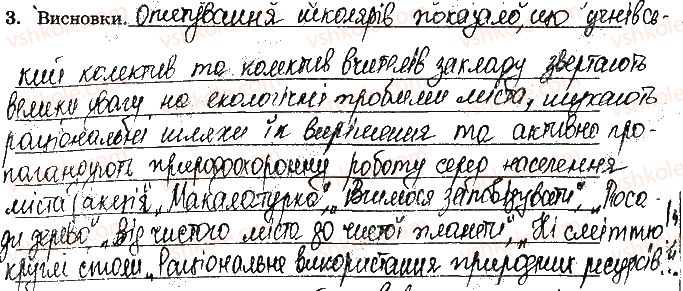 3. Висновки. Опитування школярів показало, що учнівсь-
кий колектив та колектив вчителів закладу звертають
велику увагу на екологічні проблеми міста, шукають
раціональні шляхи їх вирішення та активно про-
пагандують природоохоронну роботу серед населення
міста (акція „Макалатурка", „Вчимося заповідувати", „Поса-
ди дерево", „Від чистого міста до чистої планети", „Ні сміттю"
круглі столи „Раціональне використання природних ресурсів...